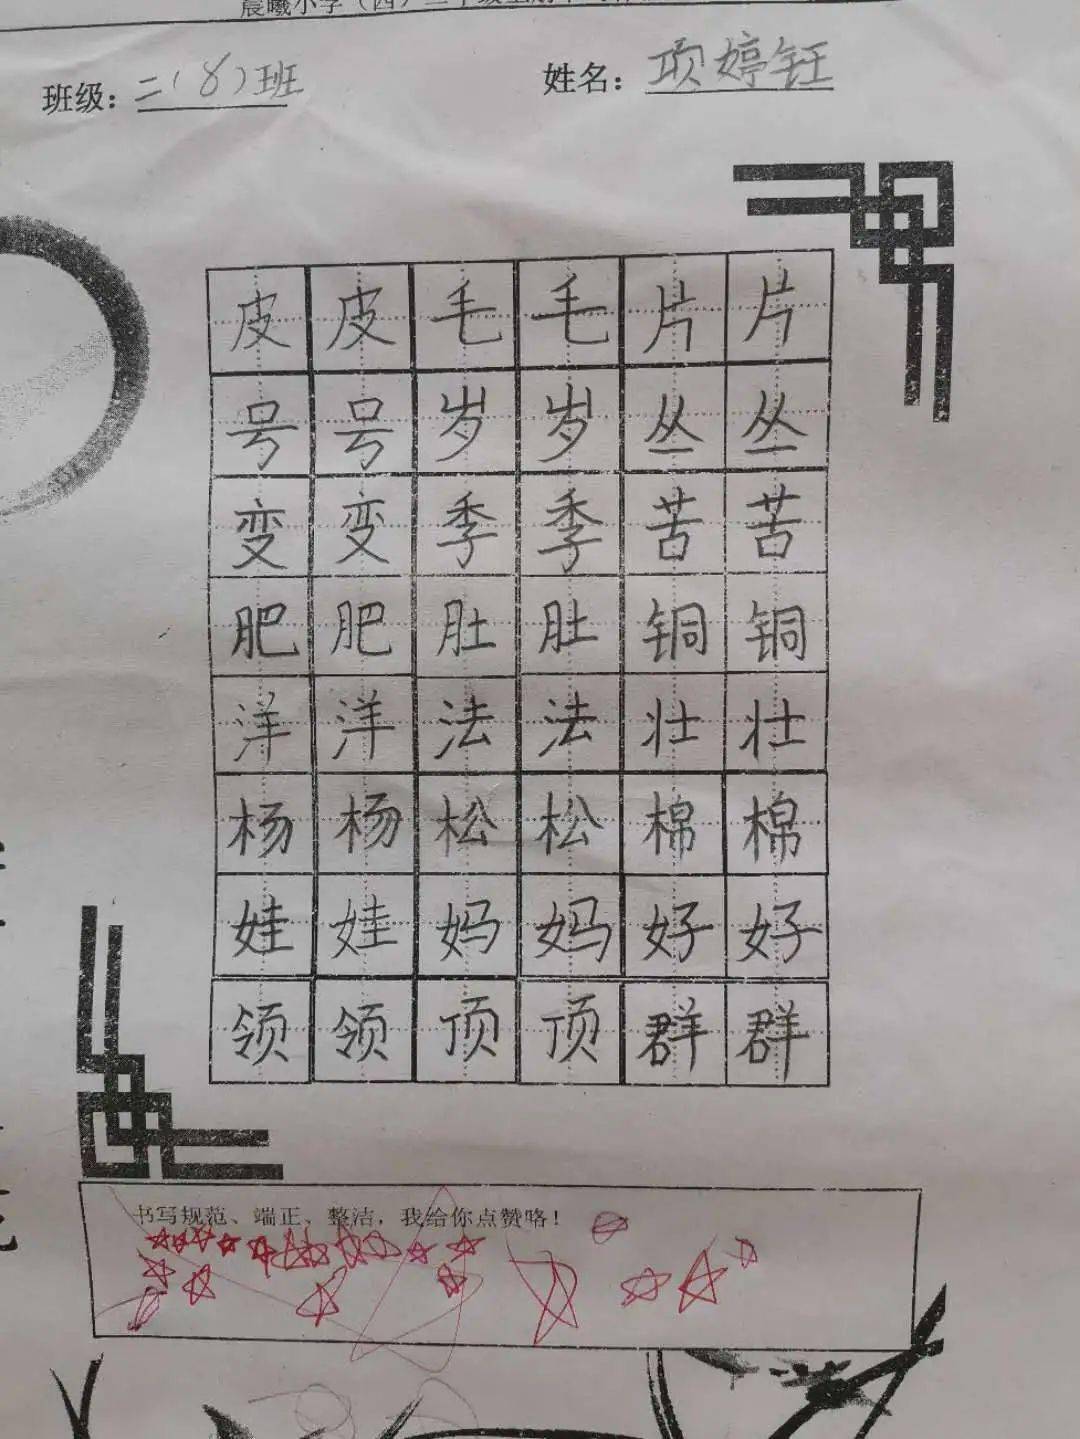 晨曦小学（四）二年级上册
班级：二（8）班 姓名：项婷钰
皮皮毛毛片片
号号岁岁丛丛
变变季季苦苦
肥肥肚肚铜铜
洋洋法法壮壮
杨杨松松棉棉
娃娃妈妈好好
领领顶顶群群
书写规范、端正、整洁，我给你点赞咯！